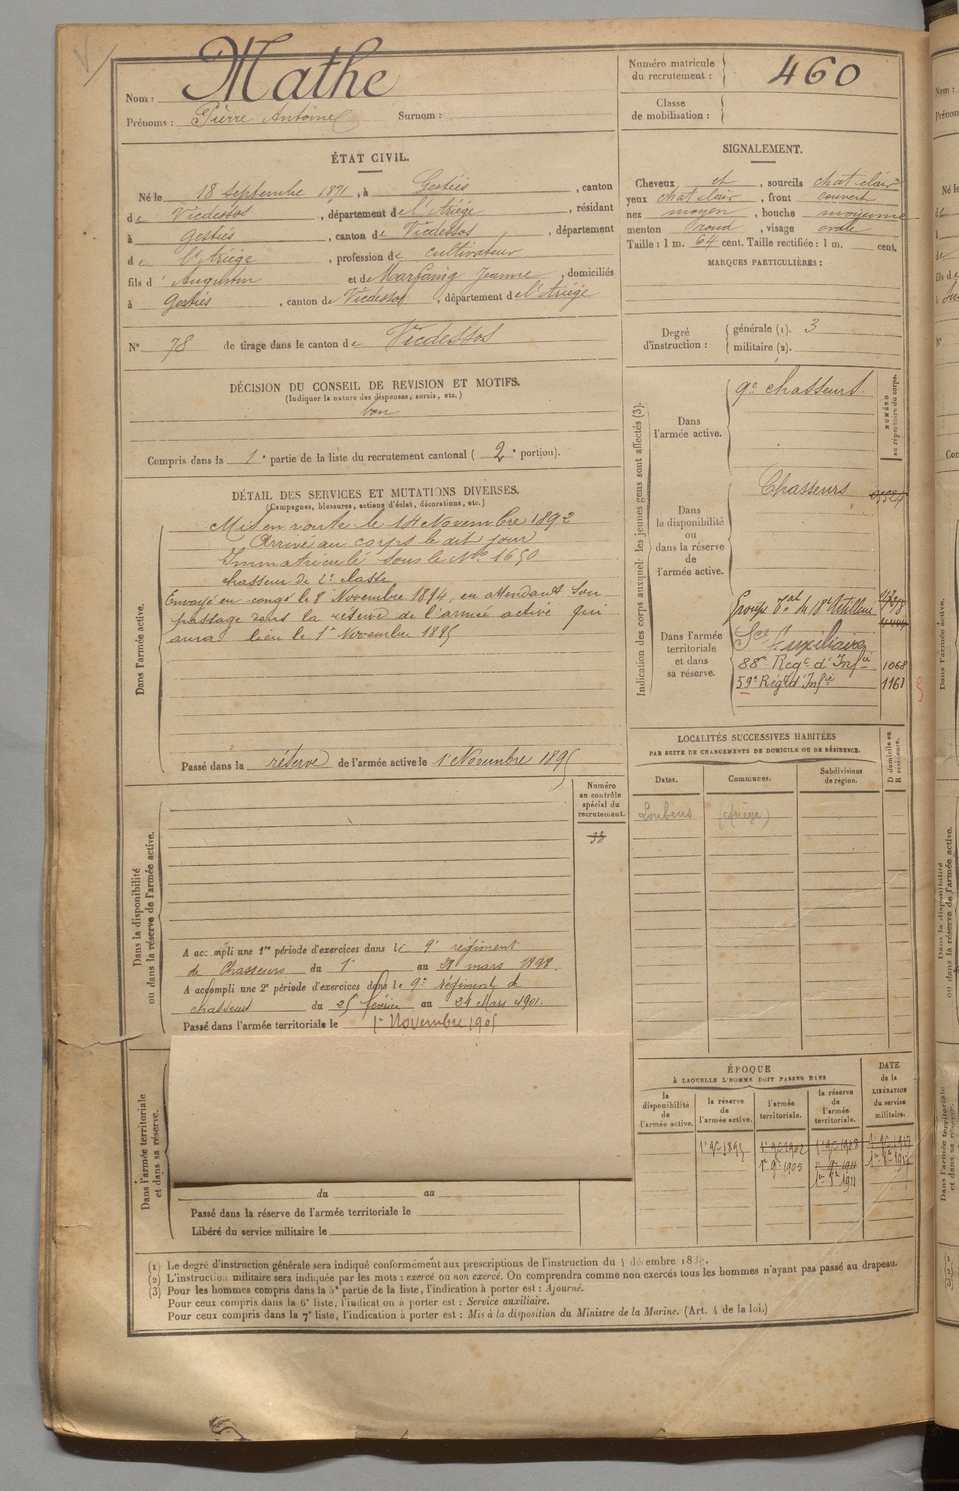 Nom : Mathe
Prénoms : Pierre Antoine Surnom :
Numéro matricule du recrutement : 460
Classe de mobilisation :
ÉTAT CIVIL.
Né le 18 Septembre 1871, à Gestiès, canton
de Vicdessos, département de l'Ariège, résidant
à Gestiès, canton de Vicdessos, département
de l'Ariège, profession de cultivateur
fils d'Augustin et de Marfaing Jeanne, domiciliés
à Gestiès, canton de Vicdessos, département de l'Ariège
N° 78 de tirage dans le canton de Vicdessos
SIGNALEMENT.
Cheveux et, sourcils chat clair
yeux chat clair, front couvert
nez moyen, bouche moyenne
menton rond, visage ovale
Taille : 1 m. 64 cent. Taille rectifiée : 1 m. cent.
MARQUES PARTICULIÈRES :
Degré d'instruction : générale (1). 3
militaire (2).
DÉCISION DU CONSEIL DE REVISION ET MOTIFS.
(Indiquer la nature des dispenses, sursis, etc.)
bon
Compris dans la 1e partie de la liste du recrutement cantonal (2e portion).
DÉTAIL DES SERVICES ET MUTATIONS DIVERSES.
(Campagnes, blessures, actions d'éclat, décorations, etc.)
Dans l'armée active.
Mis en route le 14 Novembre 1892
Arrivé au corps le dit jour
Immatriculé sous le No 1650
chasseur de 2e classe
Envoyé en congé le 8 Novembre 1894, en attendant son
passage dans la réserve de l'armée active qui
aura lieu le 1er Novembre 1895
Passé dans la réserve de l'armée active le 1er Novembre 1895
Indication des corps auxquels les jeunes gens sont affectés (3).
NUMÉRO au répertoire du corps.
Dans l'armée active.
9e Chasseurs.
Dans la disponibilité ou dans la réserve de l'armée active.
Chasseurs
Dans l'armée territoriale et dans sa réserve.
Groupe Tal du 18e Artillerie
Sce Auxiliaire
88e Regt d'Infie 1068
59e Régt d'Infie 1161
LOCALITÉS SUCCESSIVES HABITÉES
PAR SUITE DE CHANGEMENTS DE DOMICILE OU DE RÉSIDENCE.
Dates. Communes. Subdivisions de région. D domicile ou R résidence.
Loubens (Ariège)
Dans la disponibilité ou dans la réserve de l'armée active.
Numéro au contrôle spécial du recrutement.
33
A accompli une 1re période d'exercices dans le 9e régiment
de Chasseurs du 1er au 28 mars 1898.
A accompli une 2e période d'exercices dans le 9e régiment de
chasseurs du 25 février au 24 Mars 1901.
Passé dans l'armée territoriale le 1er Novembre 1905
Dans l'armée territoriale et dans sa réserve.
du au
Passé dans la réserve de l'armée territoriale le
Libéré du service militaire le
ÉPOQUE
À LAQUELLE L'HOMME DOIT PASSER DANS
la disponibilité de l'armée active.
la réserve de l'armée active.
l'armée territoriale.
la réserve de l'armée territoriale.
DATE de la LIBÉRATION du service militaire.
1er 9bre 1895
1er 9bre 1905
(1) Le degré d'instruction générale sera indiqué conformément aux prescriptions de l'instruction du
(2) L'instruction militaire sera indiquée par les mots : exercé ou non exercé. On comprendra comme non exercés tous les hommes n'ayant pas passé au drapeau.
(3) Pour les hommes compris dans la 5e partie de la liste, l'indication à porter est : Ajourné.
Pour ceux compris dans la 6e liste, l'indication à porter est : Service auxiliaire.
Pour ceux compris dans la 7e liste, l'indication à porter est : Mis à la disposition du Ministre de la Marine. (Art. 4 de la loi.)